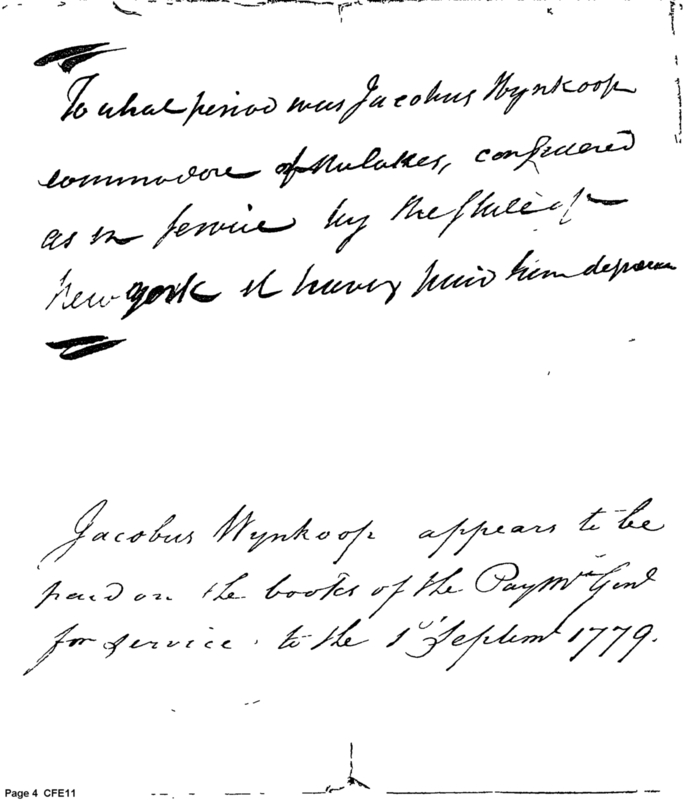 To what period was Jacobus Wynkoop
commodore of the lakes, considered
as in service by the State of
New york it having paid him
Jacobus Wynkoop appears to be
paid on the books of the PayMr Genl
for service to the 1st Septemr 1779.
Page 4 CFE11